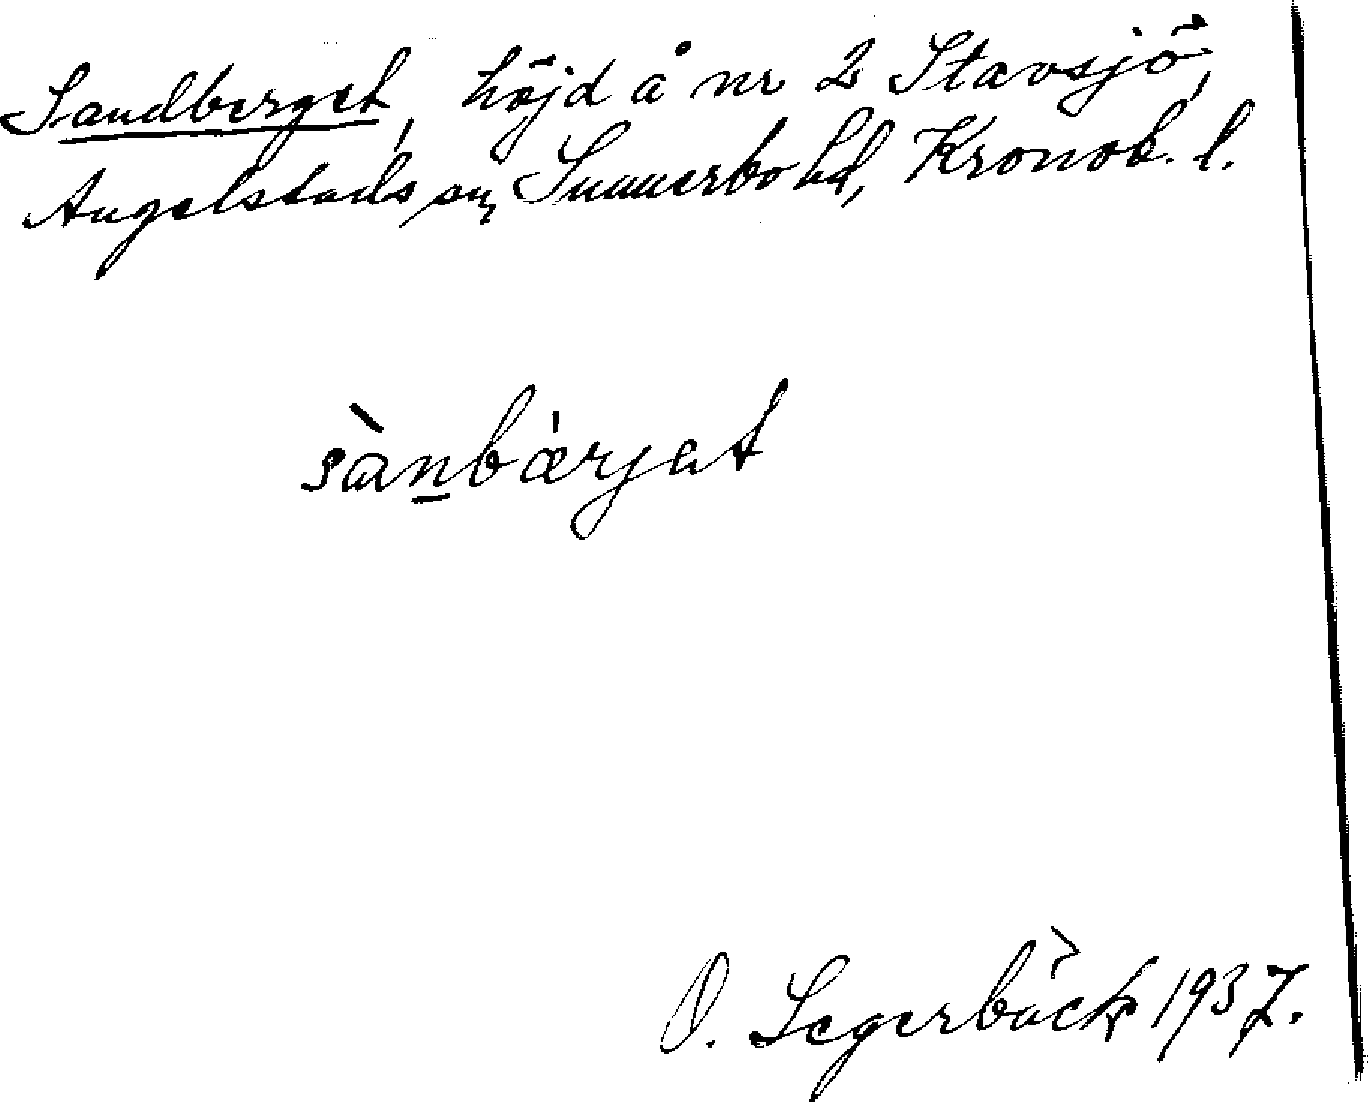 Sandberget, höjd å nr 2 Stavsjö,
Angelstads sn, Sunnerbo hd, Kronob. l.
sànbǽrjat
O. Segerbäck 1937.